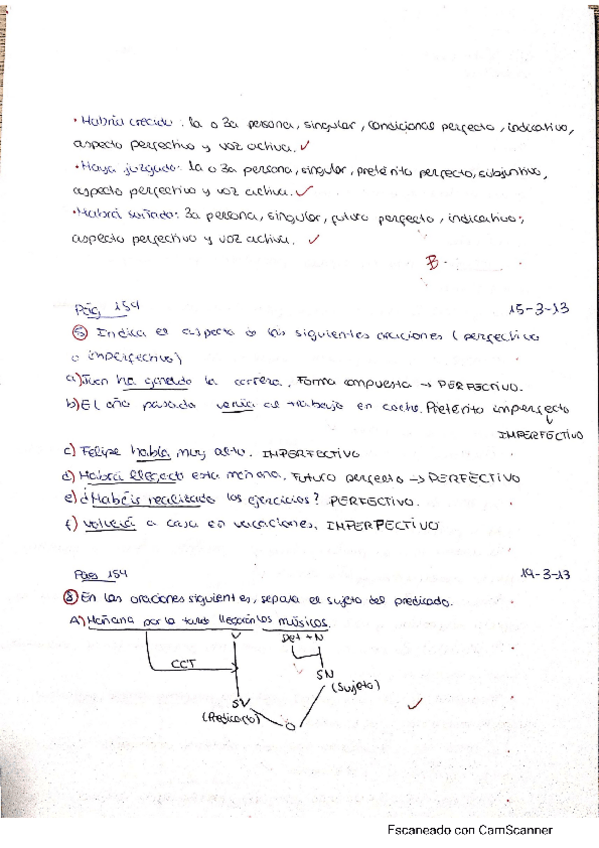 • Habría crecido: 1a o 3a persona, singular, condicional perfecto, indicativo,
aspecto perfectivo y voz activa. ✓
• Haya juzgado: 1a o 3a persona, singular, pretérito perfecto, subjuntivo,
aspecto perfectivo y voz activa. ✓
• Habrá soñado: 3a persona, singular, futuro perfecto, indicativo,
aspecto perfectivo y voz activa. ✓
B
Pág 154 15-3-13
⑤ Indica el aspecto de las siguientes oraciones (perfectivo
o imperfectivo)
a) Juan ha ganado la carrera. Forma compuesta → PERFECTIVO.
b) El año pasado venía al trabajo en coche. Pretérito imperfecto
↓
IMPERFECTIVO
c) Felipe habla muy alto. IMPERFECTIVO
d) Habrá llegado esta mañana. Futuro perfecto → PERFECTIVO
e) ¿Habéis realizado los ejercicios? PERFECTIVO.
f) Volverá a casa en vacaciones. IMPERFECTIVO
Pág 154 19-3-13
⑧ En las oraciones siguientes, separa el sujeto del predicado.
A) Mañana por la tarde llegarán los músicos.
V Det + N
CCT
SN
(Sujeto)
SV
(Predicado)
O
✓
Escaneado con CamScanner